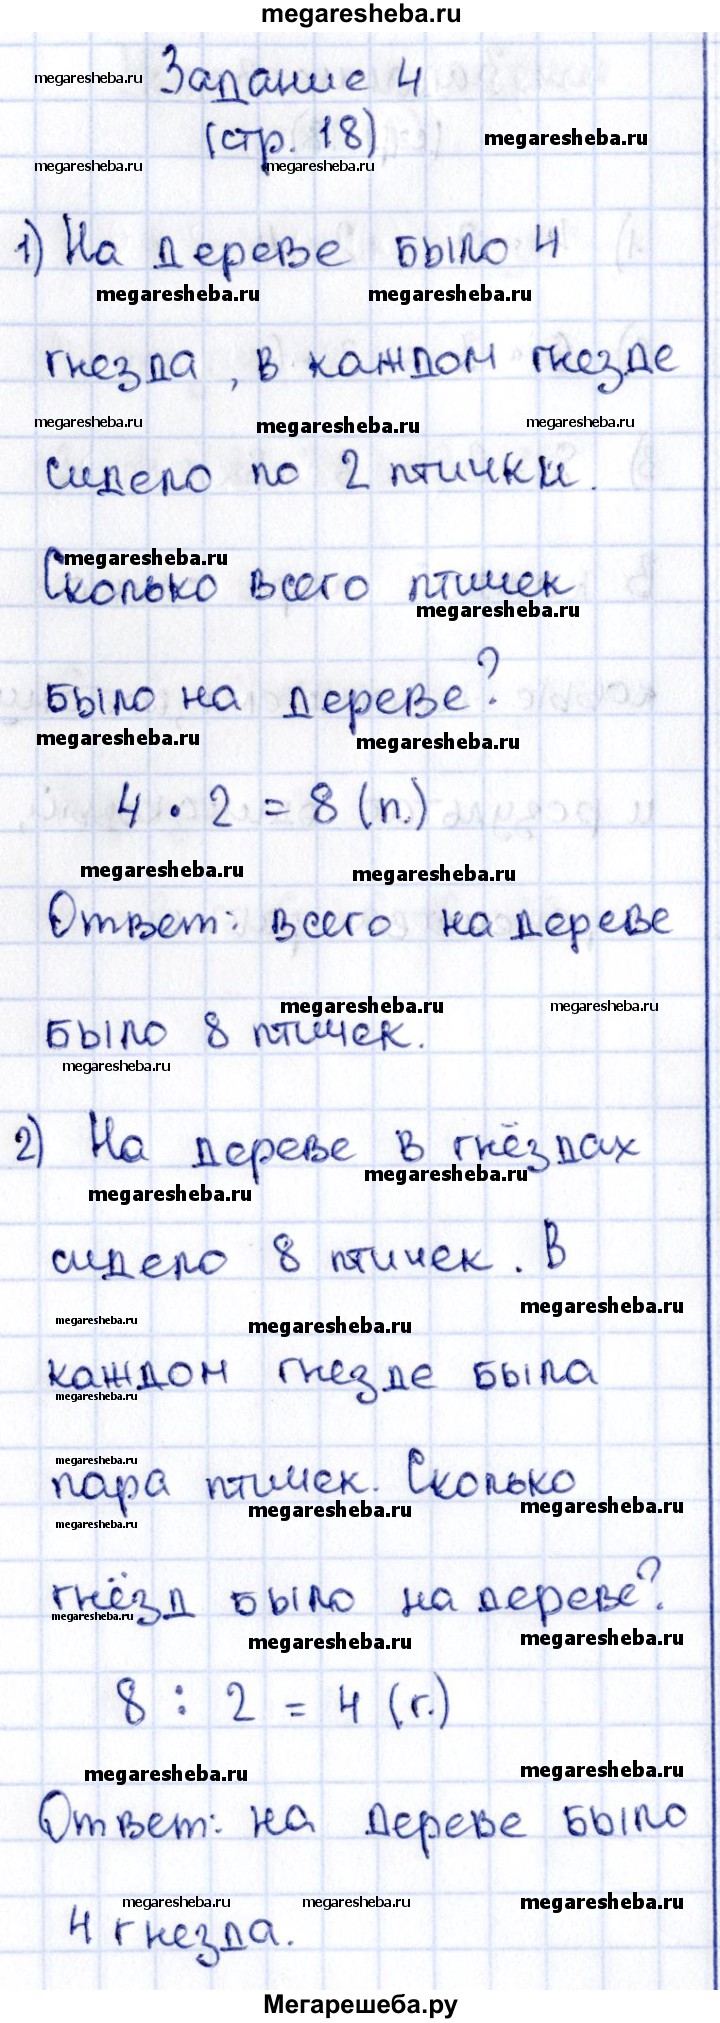 megaresheba.ru
Задание 4
megaresheba.ru
(стр. 18)
megaresheba.ru
megaresheba.ru megaresheba.ru
1) На дереве было 4
megaresheba.ru megaresheba.ru
гнезда, в каждом гнезде
megaresheba.ru megaresheba.ru megaresheba.ru
сидело по 2 птички.
megaresheba.ru
Сколько всего птичек
megaresheba.ru
было на дереве?
megaresheba.ru megaresheba.ru
4 · 2 = 8 (п.)
megaresheba.ru megaresheba.ru
Ответ: всего на дереве
megaresheba.ru megaresheba.ru
было 8 птичек.
megaresheba.ru
2) На дереве в гнёздах
megaresheba.ru megaresheba.ru
сидело 8 птичек. В
megaresheba.ru megaresheba.ru megaresheba.ru
каждом гнезде была
megaresheba.ru
megaresheba.ru
пара птичек. Сколько
megaresheba.ru megaresheba.ru megaresheba.ru
гнёзд было на дереве?
megaresheba.ru megaresheba.ru megaresheba.ru
8 : 2 = 4 (г.)
megaresheba.ru megaresheba.ru
Ответ: на дереве было
megaresheba.ru megaresheba.ru megaresheba.ru
4 гнезда.
Мегарешеба.ру